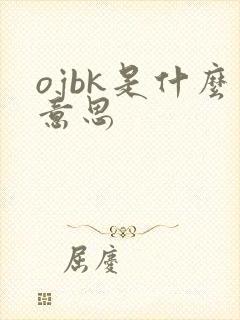 ojbk是什麼
意思
屈慶